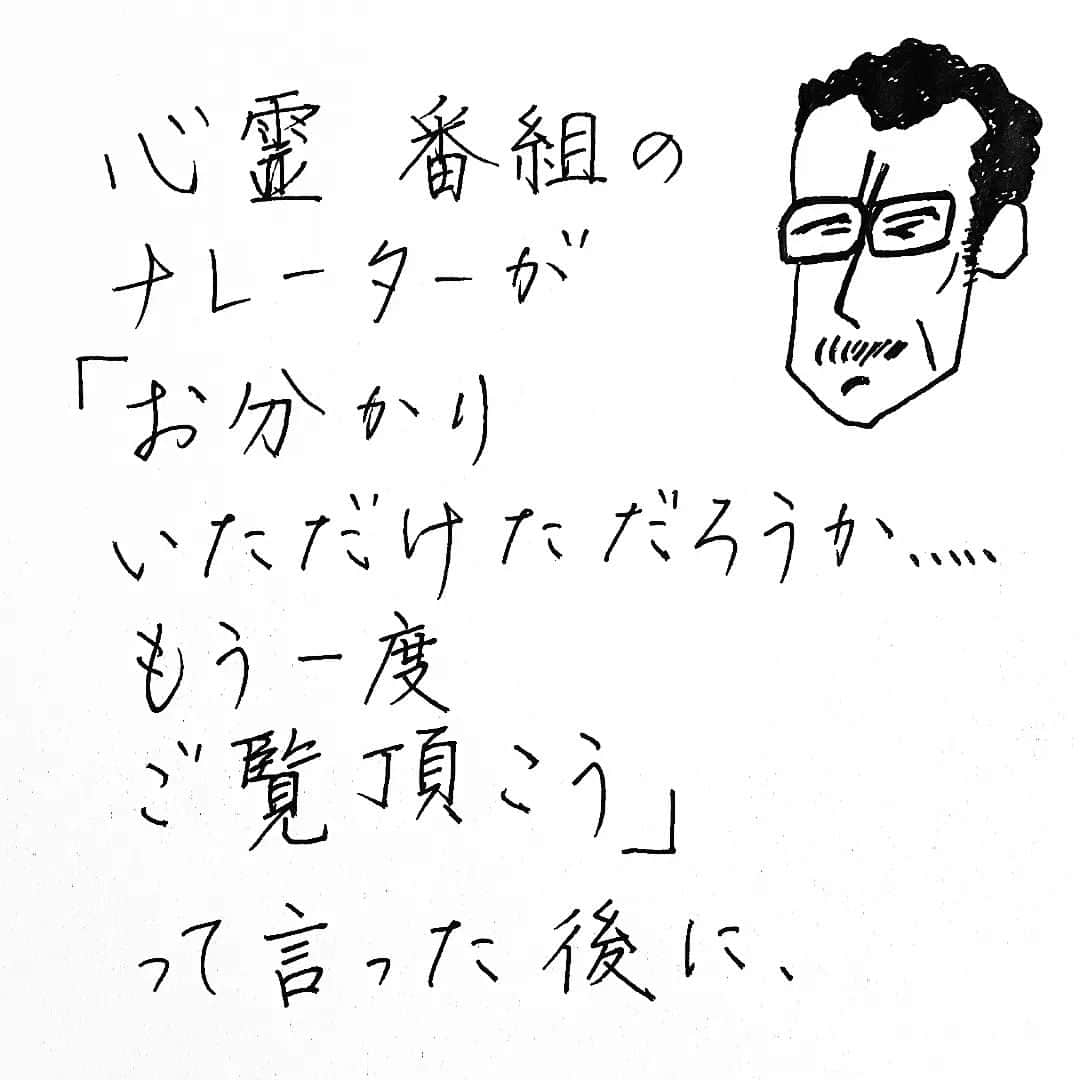 心霊番組の
ナレーターが
「お分かり
いただけただろうか.....
もう一度
ご覧頂こう」
って言った後に、